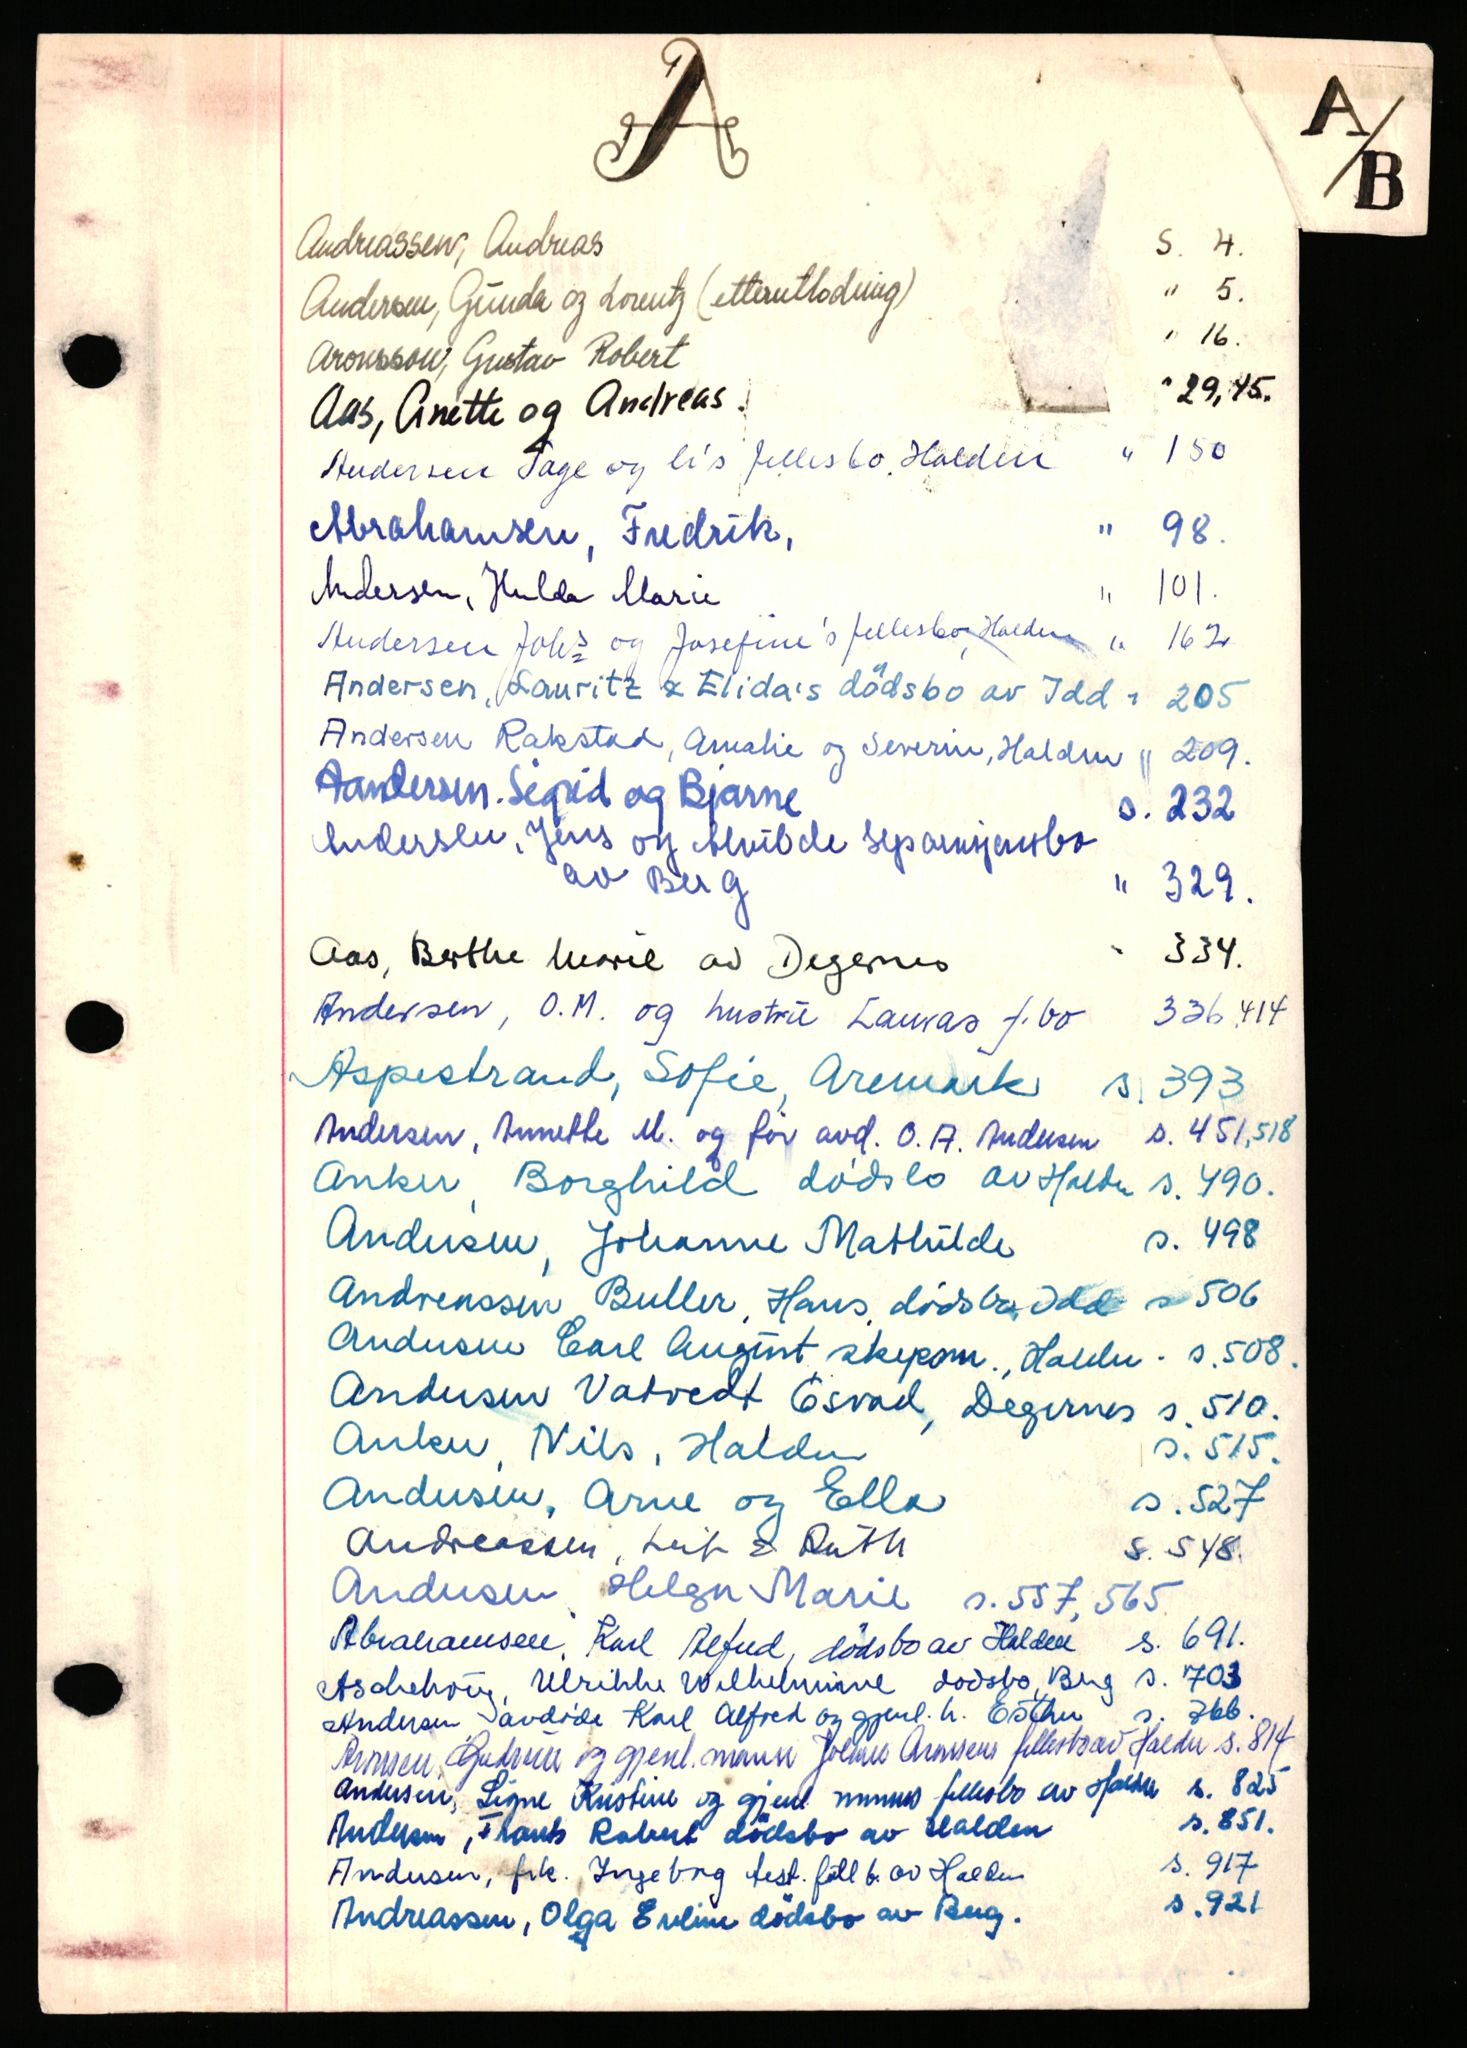 A
A/B
Andreassen, Andreas s. 4.
Andersen, Gunda og Lorentz (etterutlodning) " 5.
Aronsson, Gustav Robert " 16.
Aas, Anette og Andreas. " 29,45.
Andersen Tage og li's fellesbo, Halden " 150
Abrahamsen, Fredrik, " 98.
Andersen, Hulda Marie " 101.
Andersen Johs og Josefine's fellesbo, Halden " 162
Andersen, Lauritz & Elida's dödsbo av Idd " 205
Andersen Rakstad, Amalie og Severin, Halden " 209.
Aandersen. Sigrid og Bjarne s. 232
Andersen, Jens og Alvilde separasjonsbo
av Berg " 329.
Aas, Berthe Marie av Degernes " 334.
Andersen, O.M. og hustru Lauras f.bo 336, 414
Aspestrand, Sofie, Aremark s. 393
Andersen, Annette M. og før avd. O. A. Andersen s. 451,518
Anker, Borghild dødsbo av Halden s. 490.
Andersen, Johanne Mathilde s. 498
Andreassen Buller, Hans, dödsbo, Idd s 506
Andersen Carl August skepsm., Halden - s. 508.
Andersen Vatvedt Osvad, Degernes s. 510.
Anker, Nils, Halden s. 515.
Andersen, Arne og Ella s. 527
Andreassen, Leif & Ruth s. 548.
Andersen, Helga Marie s. 557, 565
Abrahamsen, Karl Alfred, dödsbo av Halden s. 691.
Aschehoug, Ulrikke Wilhelmine dødsbo, Berg s. 703
Andersen avdøde Karl Alfred og gjenl. h. Esther s. 766.
Aronsen, Gudrun og gjenl. mann Johans Aronsens fellesbo av Halden s. 814
Andersen, Signe Kristine og gjenl manns fellesbo av Halden s. 825
Andersen, Frants Robert dödsbo av Halden s. 851.
Andersen, frk. Ingeborg test. fell b. av Halden s. 917
Andreassen, Olga Eveline dödsbo av Berg. s. 921